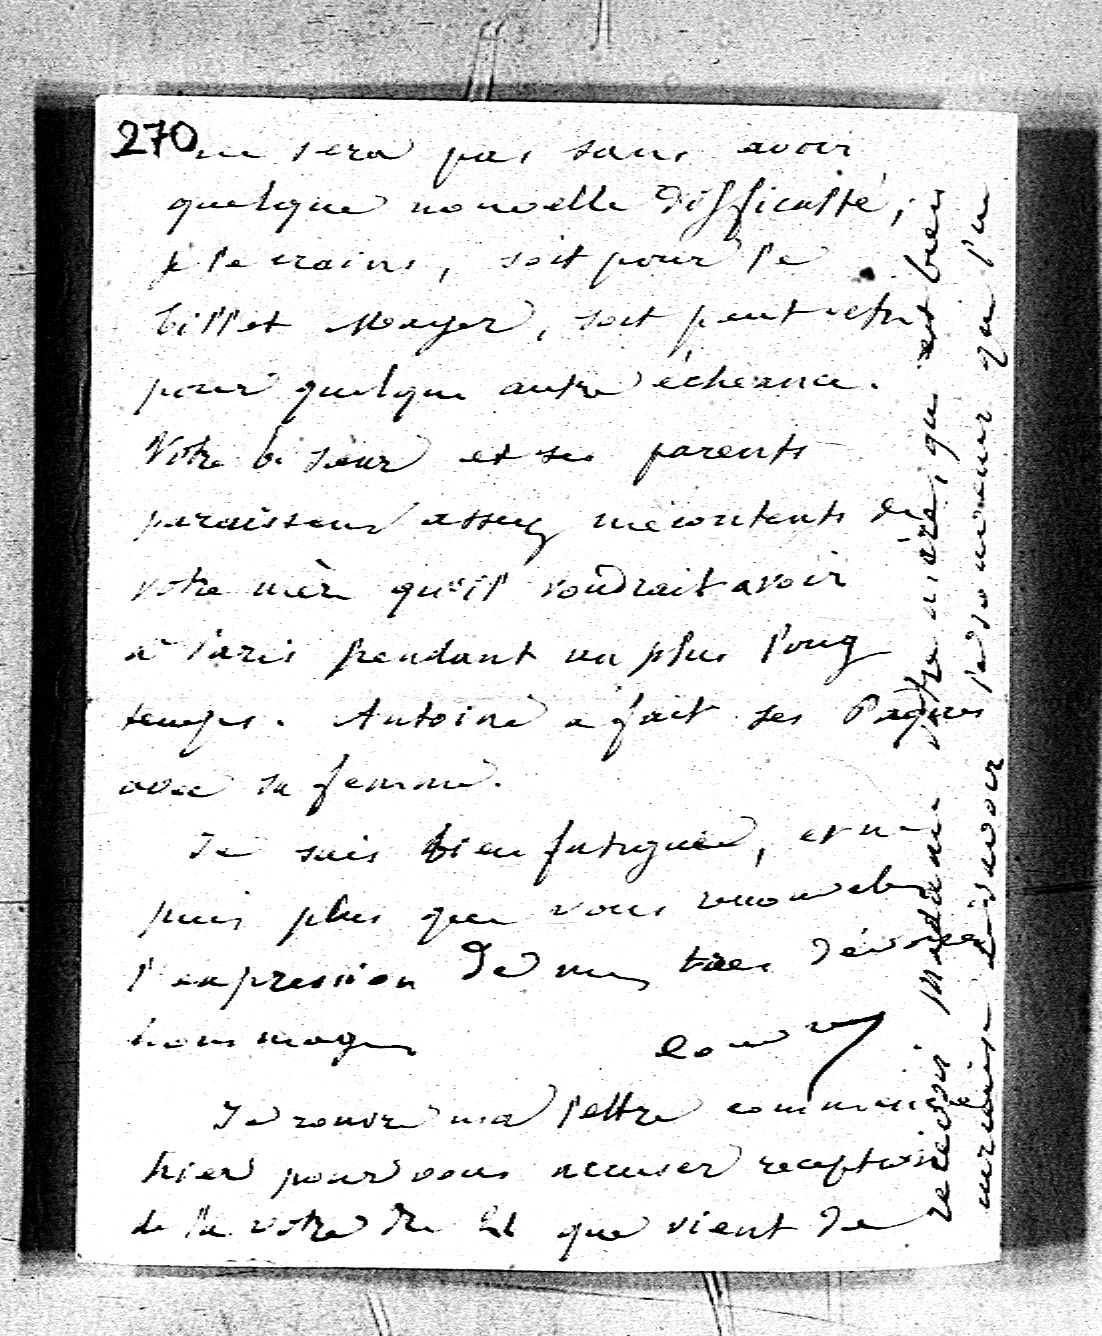 270
ne sera pas sans avoir
quelque nouvelle difficulté,
je le crains, soit pour le
billet Mayer, soit peut etre
pour quelque autre écheance.
Votre bi sieur et ses parents
paraissent assez mecontents de
votre mère qu'il voudrait avoir
à Paris pendant un plus long
temps. Antoine a fait ses Pâques
avec sa femme.
Je suis bien fatiguée, et ne
puis plus que vous renouveler
l'expression de mes tres dévoués
hommages
Je rouvre ma lettre commencée
hier pour vous accuser reception
de la votre du que vient de
recevoir Madame votre mère, qui est bien
de savoir la so que la